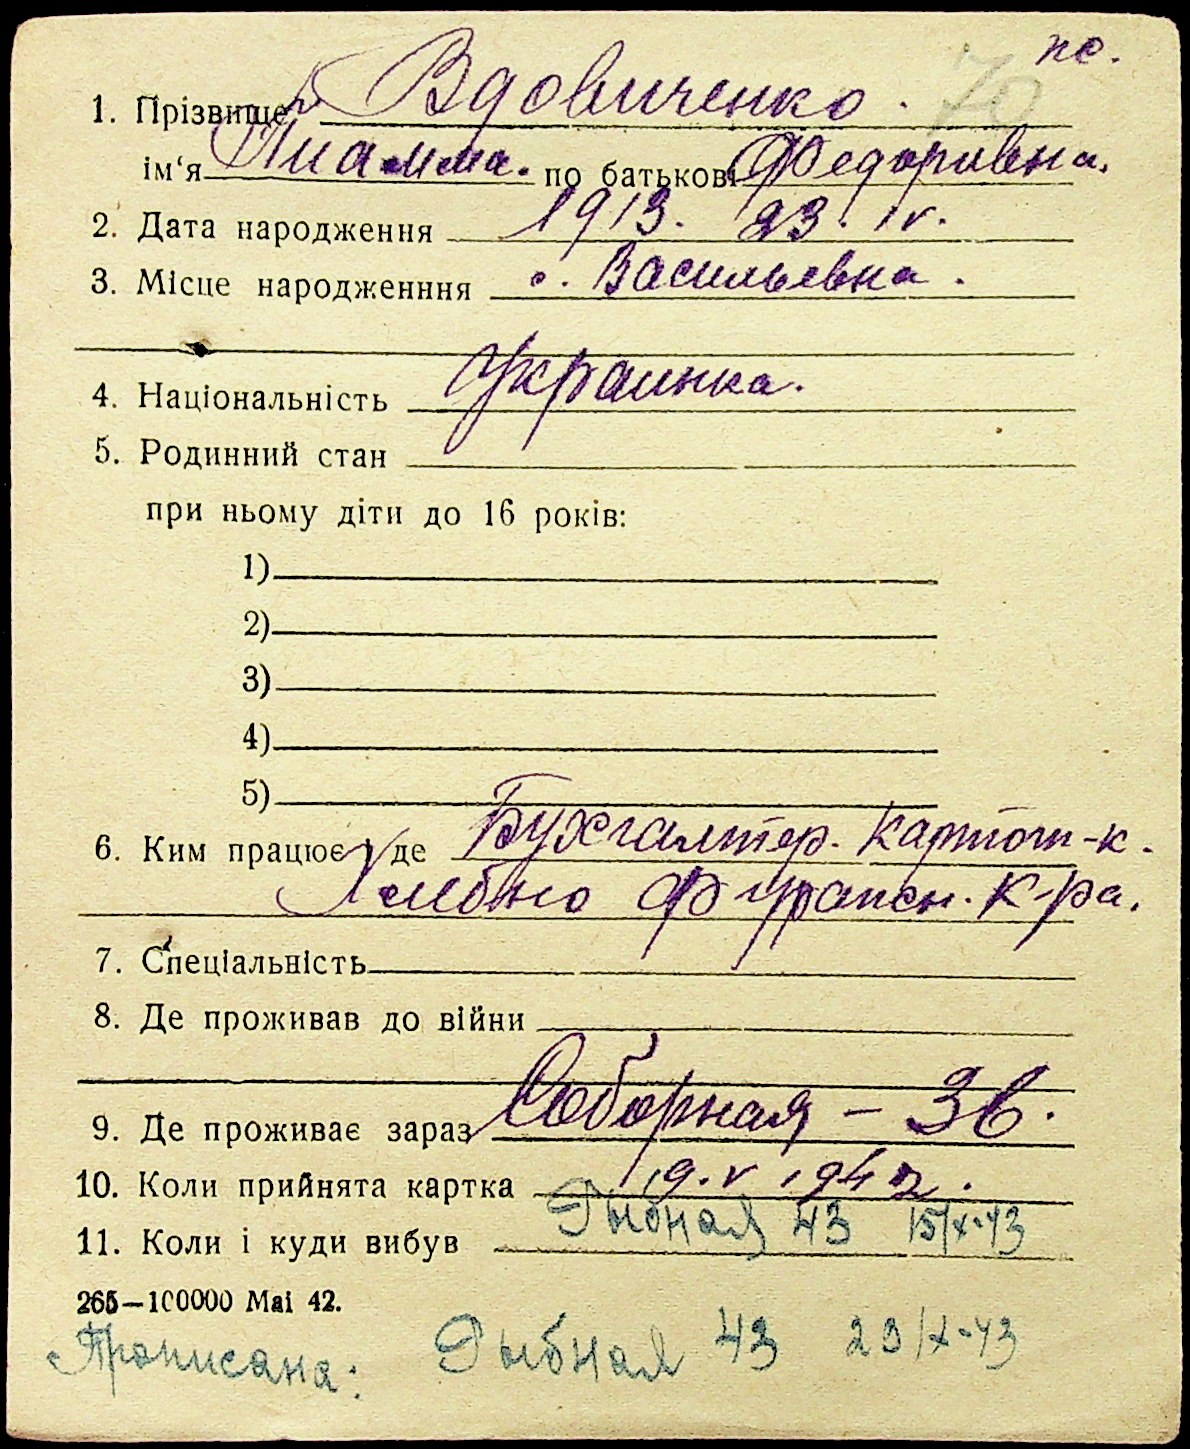 пс.
70
1. Прізвище Вдовиченко.
ім‘я Пиамма. по батькові Федоривна.
2. Дата народження 1913. 23. IV.
3. Місце народженння с. Васильевна.
4. Національність Украинка.
5. Родинний стан
при ньому діти до 16 років:
1)
2)
3)
4)
5)
6. Ким працює і де Бухгалтер. Картот-к.
Хлебно Фуражн. К-ра.
7. Спеціальність
8. Де проживав до війни
9. Де проживає зараз Соборная – 3в.
10. Коли прийнята картка 19. V 1942.
11. Коли і куди вибув Рыбная 43 15/X-43
265—100000 Mai 42.
Прописана: Рыбная 43 23/X-43